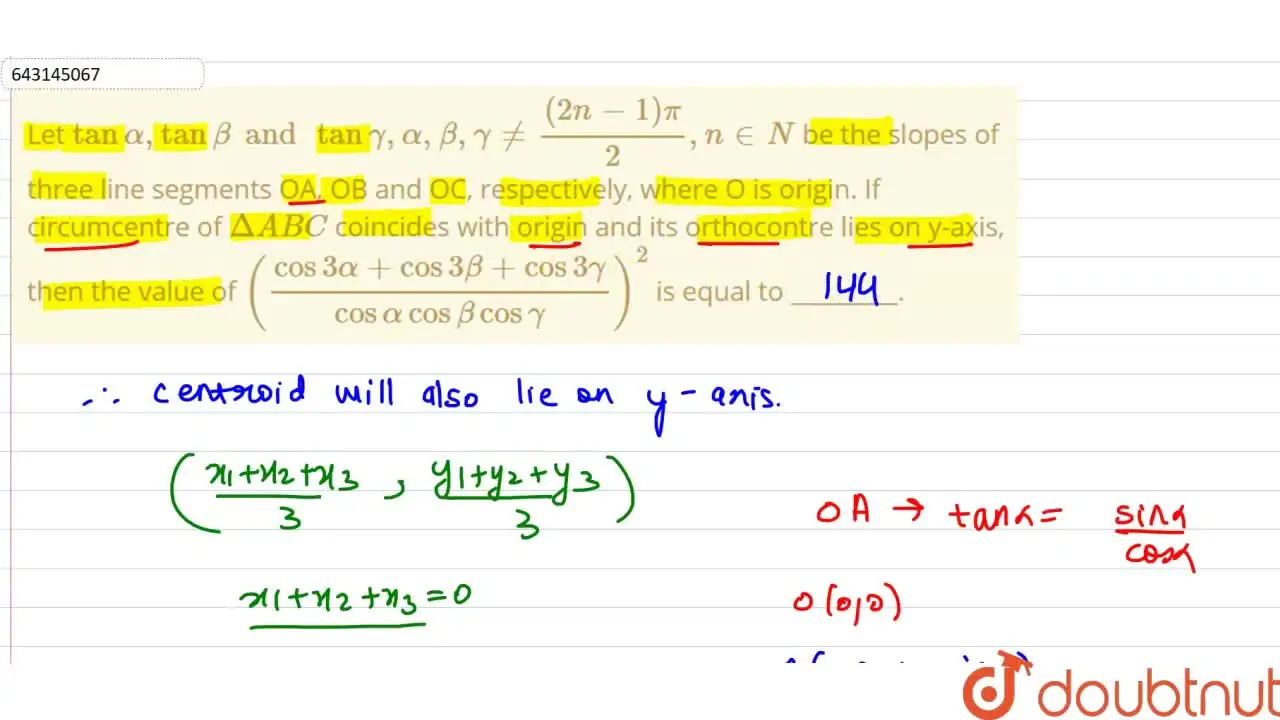 643145067
Let tan α, tan β and tan γ, α, β, γ ≠ (2n − 1)π / 2, n ∈ N be the slopes of
three line segments OA, OB and OC, respectively, where O is origin. If
circumcentre of ΔABC coincides with origin and its orthocontre lies on y-axis,
then the value of ((cos 3α + cos 3β + cos 3γ) / (cos α cos β cos γ))² is equal to 144.
∴ centroid will also lie on y-axis.
((x1+x2+x3) / 3 , (y1+y2+y3) / 3)
OA → tanα = sinα / cosα
x1+x2+x3=0
O(0,0)
doubtnut